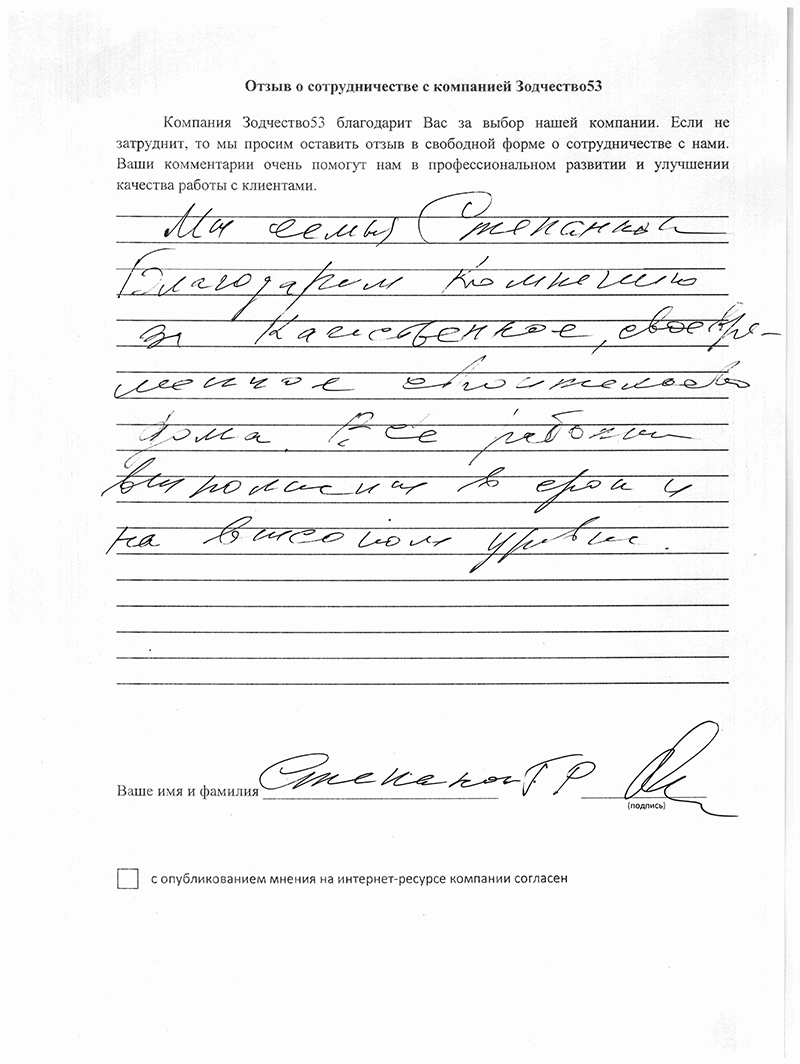 Отзыв о сотрудничестве с компанией Зодчество53
Компания Зодчество53 благодарит Вас за выбор нашей компании. Если не
затруднит, то мы просим оставить отзыв в свободной форме о сотрудничестве с нами.
Ваши комментарии очень помогут нам в профессиональном развитии и улучшении
качества работы с клиентами.
Мы семья
Благодарим Компанию
за Качественное, своевре-
менное строительство
дома. Все работы
выполнены в срок и
на высоком уровне.
Ваше имя и фамилия
(подпись)
с опубликованием мнения на интернет-ресурсе компании согласен